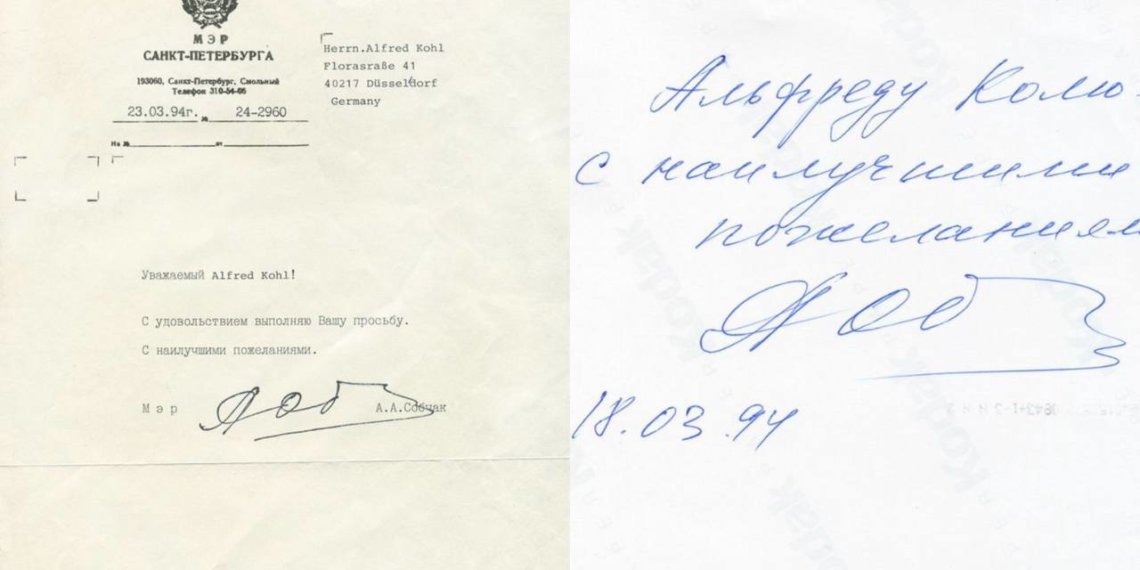 МЭР
САНКТ-ПЕТЕРБУРГА
193060, Санкт-Петербург, Смольный
Телефон 310-54-06
23.03.94г. № 24-2960
На № от
Herrn.Alfred Kohl
Florasraße 41
40217 Düsseldorf
Germany
Уважаемый Alfred Kohl!
С удовольствием выполняю Вашу просьбу.
С наилучшими пожеланиями.
Мэр А.А.Собчак
Альфреду Колю
с наилучшими
пожеланиям
18.03.94
Kodak
Kodak
Kodak